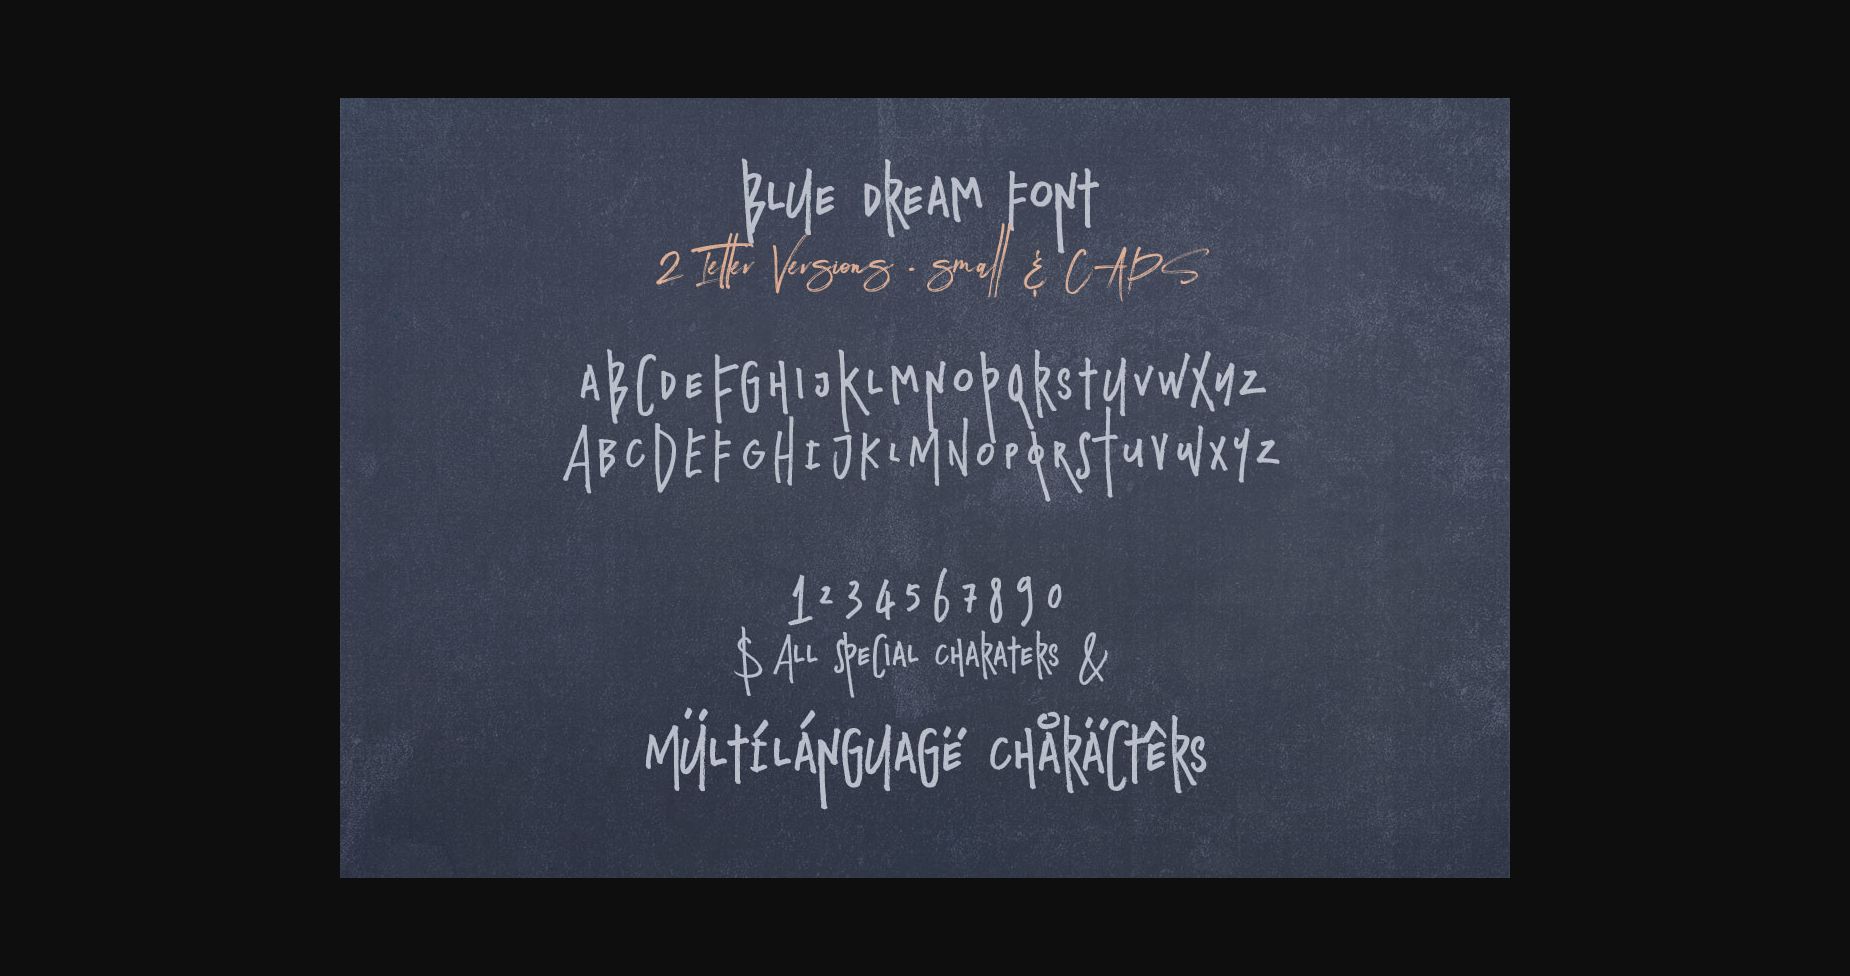 BLUE DREAM FONT
2 Letter Versions · small & CAPS
ABCDEFGHIJKLMNOPQRSTUVWXYZ
ABCDEFGHIJKLMNOPQRSTUVWXYZ
1234567890
$ ALL SPECIAL CHARATERS &
MÜLTÍLÁNGUAGË CHÅRÄCTÊRS